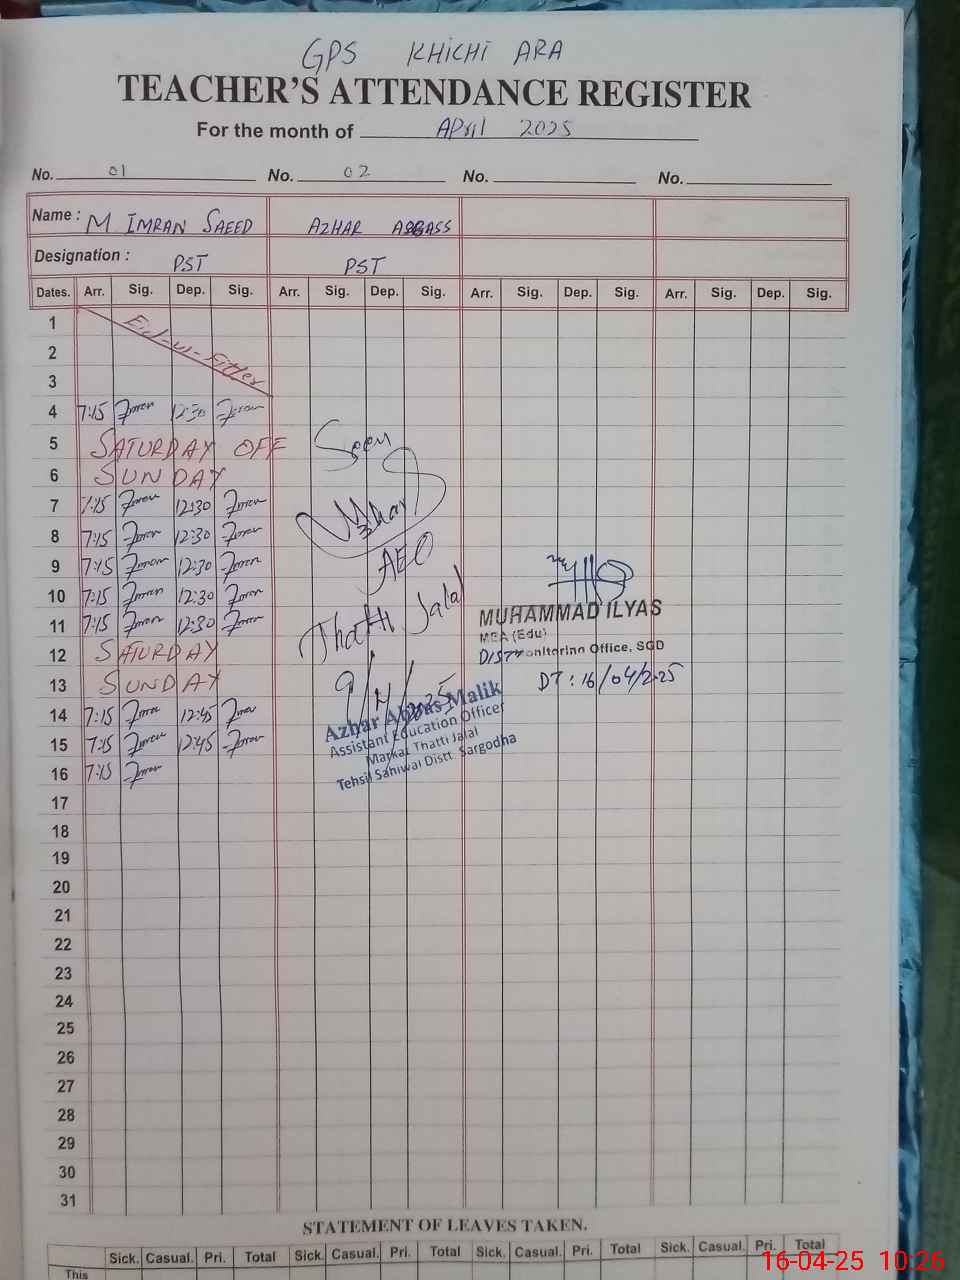 GPS KHICHI ARA
TEACHER'S ATTENDANCE REGISTER
For the month of April 2025
No. 01 No. 02 No. No.
Name : M IMRAN SAEED AZHAR ABBASS
Designation : PST PST
Dates. Arr. Sig. Dep. Sig. Arr. Sig. Dep. Sig. Arr. Sig. Dep. Sig. Arr. Sig. Dep. Sig.
1
Eid-ul-Fitter
2
3
4 7:15 Imran 12:30 Imran
5 SATURDAY OFF
Seen
6 SUNDAY
7 7:15 Imran 12:30 Imran
8 7:15 Imran 12:30 Imran
9 7:15 Imran 12:30 Imran
AEO
10 7:15 Imran 12:30 Imran
11 7:15 Imran 12:30 Imran
Thatti Jalal
MUHAMMAD ILYAS
MEA (Edu)
12 SATURDAY
DISTT Monitoring Office, SGD
13 SUNDAY
9/4/2025
DT : 16/04/2025
14 7:15 Imran 12:45 Imran
Azhar Abbas Malik
Assistant Education Officer
15 7:15 Imran 12:45 Imran
Markaz Thatti Jalal
Tehsil Sahiwal Distt. Sargodha
16 7:15 Imran
17
18
19
20
21
22
23
24
25
26
27
28
29
30
31
STATEMENT OF LEAVES TAKEN.
Sick. Casual. Pri. Total Sick. Casual. Pri. Total Sick. Casual. Pri. Total Sick. Casual. Pri. Total
This
16-04-25 10:26